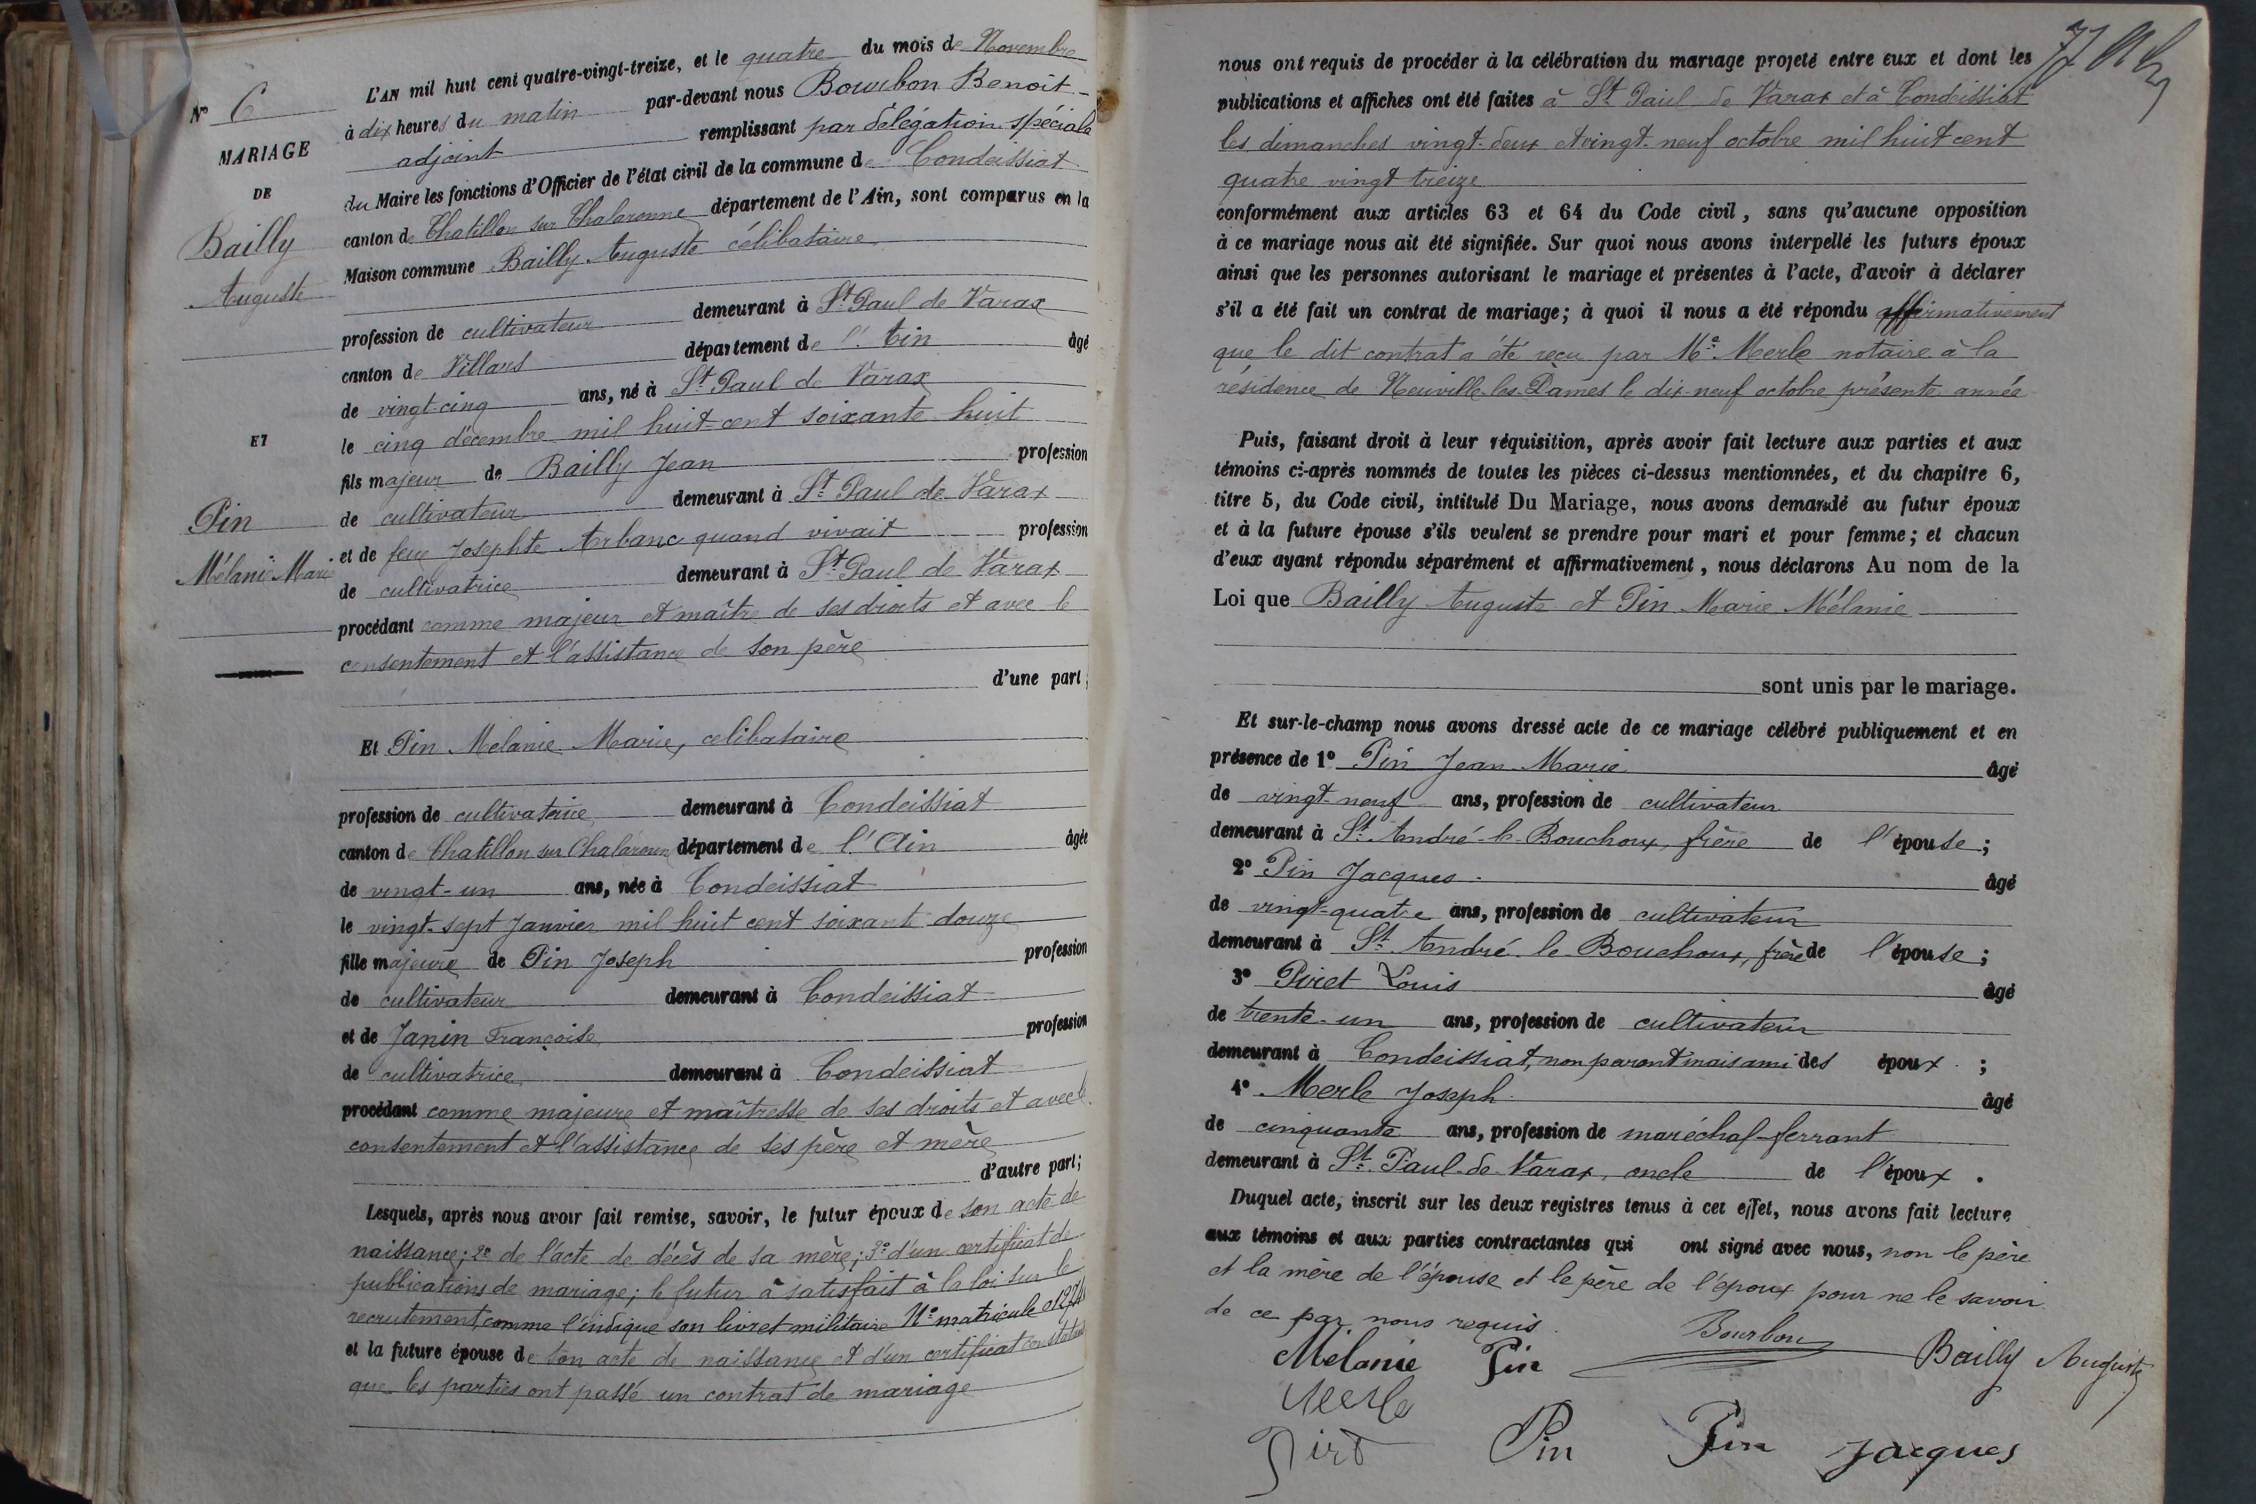 N° 6
MARIAGE
DE
Bailly
Auguste
ET
Pin
Mélanie Marie
L'AN mil huit cent quatre-vingt-treize, et le quatre du mois de Novembre
à dix heures du matin par-devant nous Bourbon Benoît
adjoint remplissant par délégation spéciale
du Maire les fonctions d'Officier de l'état civil de la commune de Condeissiat
canton de Chatillon sur Chalaronne département de l'Ain, sont comparus en la
Maison commune Bailly Auguste célibataire
profession de cultivateur demeurant à St Paul de Varax
canton de Villars département de l'Ain âgé
de vingt-cinq ans, né à St Paul de Varax
le cinq décembre mil huit cent soixante huit
fils majeur de Bailly Jean profession
de cultivateur demeurant à St Paul de Varax
et de feue Josephte Arbanc quand vivait profession
de cultivatrice demeurant à St Paul de Varax
procédant comme majeur et maître de ses droits et avec le
consentement et l'assistance de son père
d'une part;
Et Pin Mélanie Marie, célibataire
profession de cultivatrice demeurant à Condeissiat
canton de Chatillon sur Chalaronne département de l'Ain âgée
de vingt-un ans, née à Condeissiat
le vingt-sept Janvier mil huit cent soixante douze
fille majeure de Pin Joseph profession
de cultivateur demeurant à Condeissiat
et de Janin Françoise profession
de cultivatrice demeurant à Condeissiat
procédant comme majeure et maîtresse de ses droits et avec le
consentement et l'assistance de ses père et mère
d'autre part;
Lesquels, après nous avoir fait remise, savoir, le futur époux de son acte de
naissance; 2° de l'acte de décès de sa mère; 3° d'un certificat de
publications de mariage; le futur à satisfait à la loi sur le
recrutement, comme l'indique son livret militaire N° matricule
et la future épouse de son acte de naissance et d'un certificat constatant
que les parties ont passé un contrat de mariage
nous ont requis de procéder à la célébration du mariage projeté entre eux et dont les
publications et affiches ont été faites à St Paul de Varax et à Condeissiat
les dimanches vingt-deux et vingt-neuf octobre mil huit cent
quatre vingt treize
conformément aux articles 63 et 64 du Code civil, sans qu'aucune opposition
à ce mariage nous ait été signifiée. Sur quoi nous avons interpellé les futurs époux
ainsi que les personnes autorisant le mariage et présentes à l'acte, d'avoir à déclarer
s'il a été fait un contrat de mariage; à quoi il nous a été répondu affirmativement
que le dit contrat a été reçu par Me Merle notaire à la
résidence de Neuville-les-Dames le dix-neuf octobre présente année
Puis, faisant droit à leur réquisition, après avoir fait lecture aux parties et aux
témoins ci-après nommés de toutes les pièces ci-dessus mentionnées, et du chapitre 6,
titre 5, du Code civil, intitulé Du Mariage, nous avons demandé au futur époux
et à la future épouse s'ils veulent se prendre pour mari et pour femme; et chacun
d'eux ayant répondu séparément et affirmativement, nous déclarons Au nom de la
Loi que Bailly Auguste et Pin Marie Mélanie
sont unis par le mariage.
Et sur-le-champ nous avons dressé acte de ce mariage célébré publiquement et en
présence de 1° Pin Jean Marie âgé
de vingt-neuf ans, profession de cultivateur
demeurant à St André-le-Bouchoux, frère de l'épouse;
2° Pin Jacques âgé
de vingt-quatre ans, profession de cultivateur
demeurant à St André-le-Bouchoux, frère de l'épouse;
3° Piret Louis âgé
de trente-un ans, profession de cultivateur
demeurant à Condeissiat, non parent mais ami des époux;
4° Merle Joseph âgé
de cinquante ans, profession de maréchal-ferrant
demeurant à St Paul-de-Varax, oncle de l'époux.
Duquel acte, inscrit sur les deux registres tenus à cet effet, nous avons fait lecture
aux témoins et aux parties contractantes qui ont signé avec nous, non le père
et la mère de l'épouse et le père de l'époux pour ne le savoir
de ce par nous requis.
Mélanie Pin Bourbon Bailly Auguste
Merle
Pin Pin Jacques